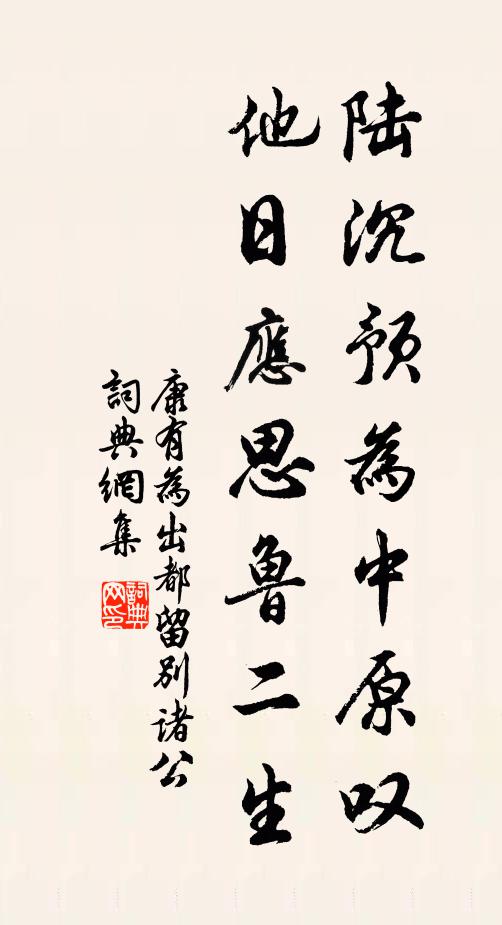 陆沉预為中原叹
他日應思魯二生
康有為出都留別诸公
詞典網集
詞典
网印